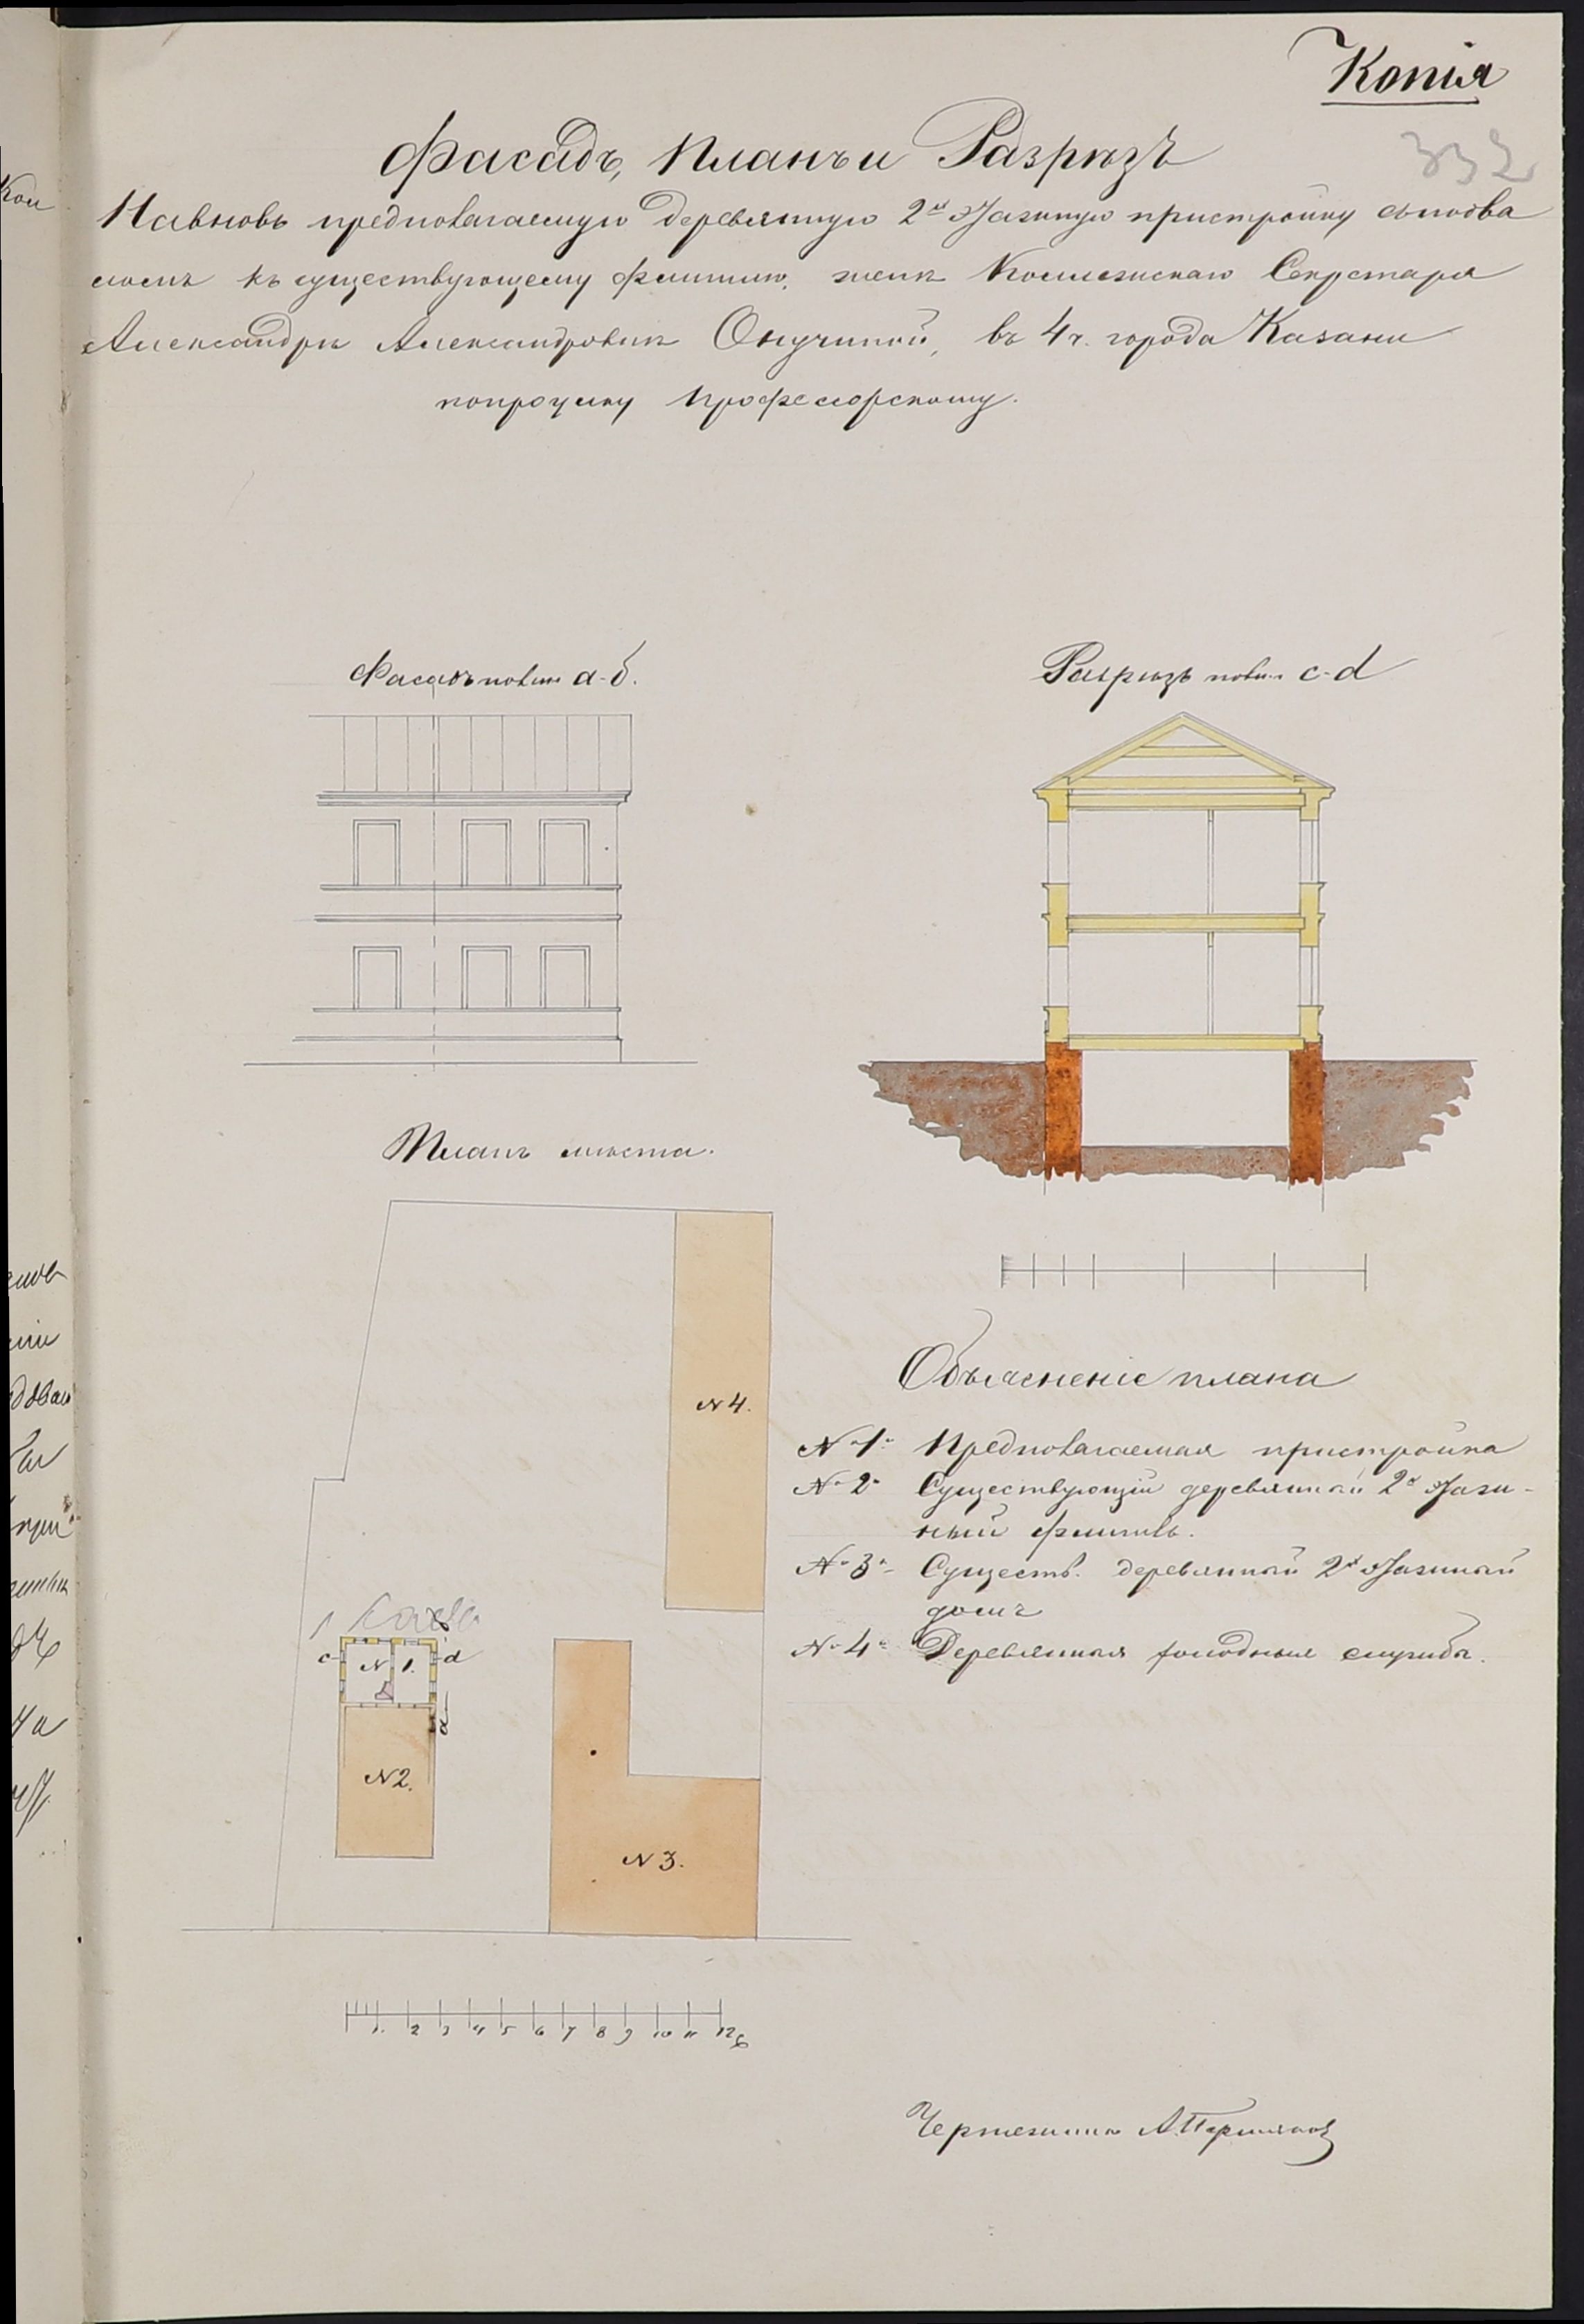 Копія
332
Фасадъ, Планъ и Разрѣзъ
На вновь предполагаемую деревянную 2х этажную пристройку съ подва
ломъ къ существующему флигилю, женѣ Коллежскаго Секретаря
Александрѣ Александровнѣ Онучиной, въ 4 ч. города Казани
по проулку Профессорскому.
Фасадъ по лин. а-б.
Разрѣзъ по лин. c-d
Планъ мѣста.
Объясненіе плана
N 1. Предполагаемая пристройка
N 2. Существующій деревянной 2х этаж-
ный флигиль.
N 3. Существ. деревянной 2х этажной
домъ
N 4. Деревянная холодныя службы.
N 4.
c N 1. d
а
N 2.
N 3.
1. 2 3 4 5 6 7 8 9 10 11 12 с
Чертежникъ А. Пермяковъ